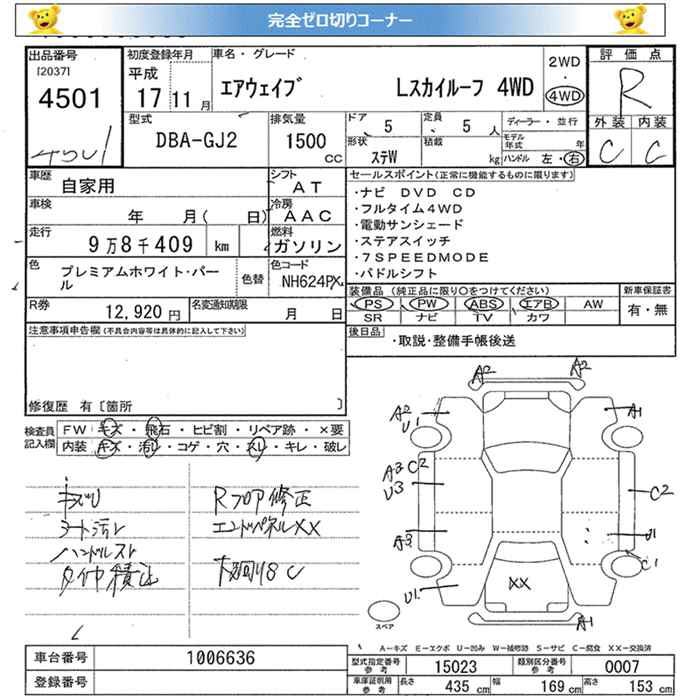 完全ゼロ切りコーナー
出品番号 初度登録年月 車名・グレード 評価点
[2037] 平成 エアウェイブ Lスカイルーフ 4WD 2WD・4WD R
4501 17 11月
4501 型式 排気量 ドア 5 定員 5人 ディーラー・並行 外装 内装
DBA-GJ2 1500cc 形状 ステW 積載 kg モデル年式 年 C C
ハンドル 左・右
車歴 自家用 シフト AT セールスポイント(正常に機能するものに限ります)
車検 年 月( 日) 冷房 AAC ・ナビ DVD CD
・フルタイム4WD
走行 9万8千409 km 燃料 ガソリン ・電動サンシェード
・ステアスイッチ
色 プレミアムホワイト・パール 色替 色コード NH624PX ・7SPEEDMODE
・パドルシフト
R券 12,920円 名変通知期限 月 日 装備品 (純正品に限り○をつけてください) 新車保証書
PS PW ABS エアB AW 有・無
SR ナビ TV カワ
注意事項申告欄(不具合内容等は具体的に記入して下さい) 後日品
・取説・整備手帳後送
修復歴 有〔箇所 〕
検査員記入欄 FW キズ・飛石・ヒビ割・リペア跡・×要
内装 キズ・汚れ・コゲ・穴・スレ・キレ・破レ
キズU Rフロア修正
シート汚レ エンドパネルXX
ハンドルスレ
タイヤ積込 下廻りS C
A2 A2
A2 A1
U1
A3 C2
U3 C2
A3 U1
C1
U1 XX
A1
スペア
A-キズ E-エクボ U-凹み W-補修跡 S-サビ C-腐食 XX-交換済
車台番号 1006636 型式指定番号 参考 15023 類別区分番号 参考 0007
登録番号 車庫証明用 参考 長さ 435cm 幅 169cm 高さ 153cm